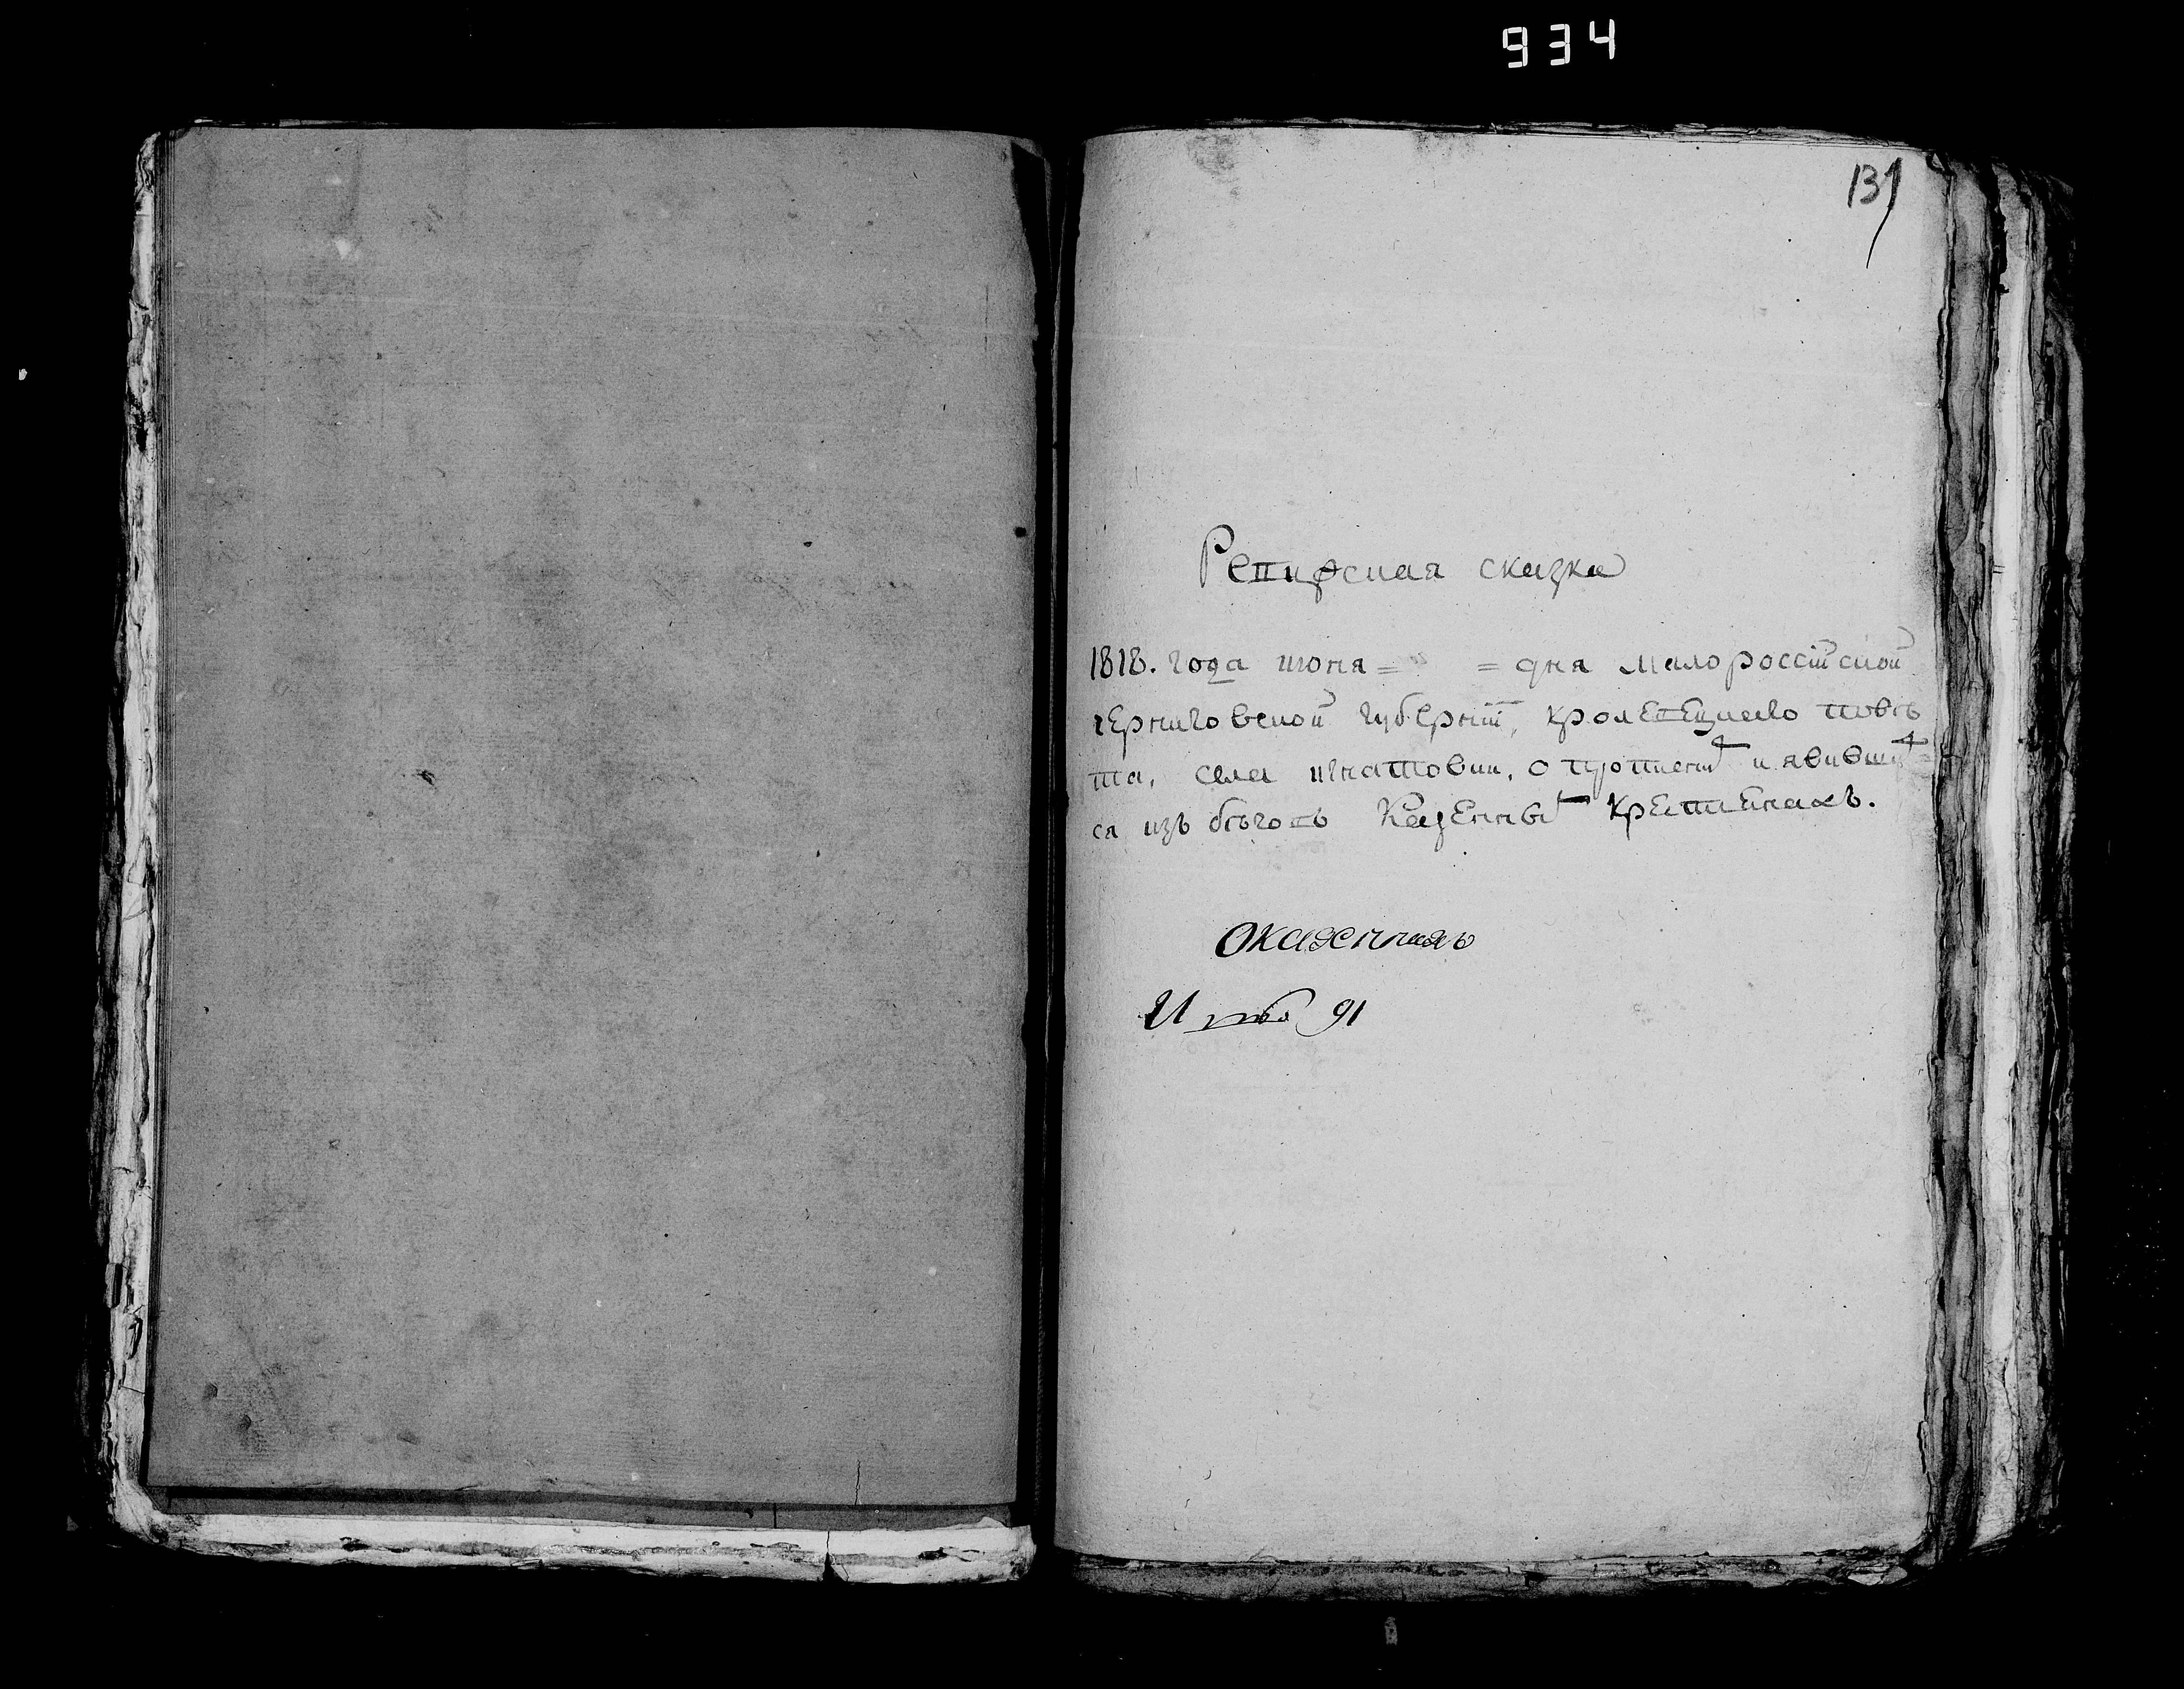 934
131
Ревизская сказка
1818. года июня = = дня малороссiйской
черниговской губернiи, кролевецкаго повѣ
та, села игнатовки, о пропущеныхъ и явивших=
ся изъ бѣговъ Казенныхъ крестьянахъ.
Итого 91